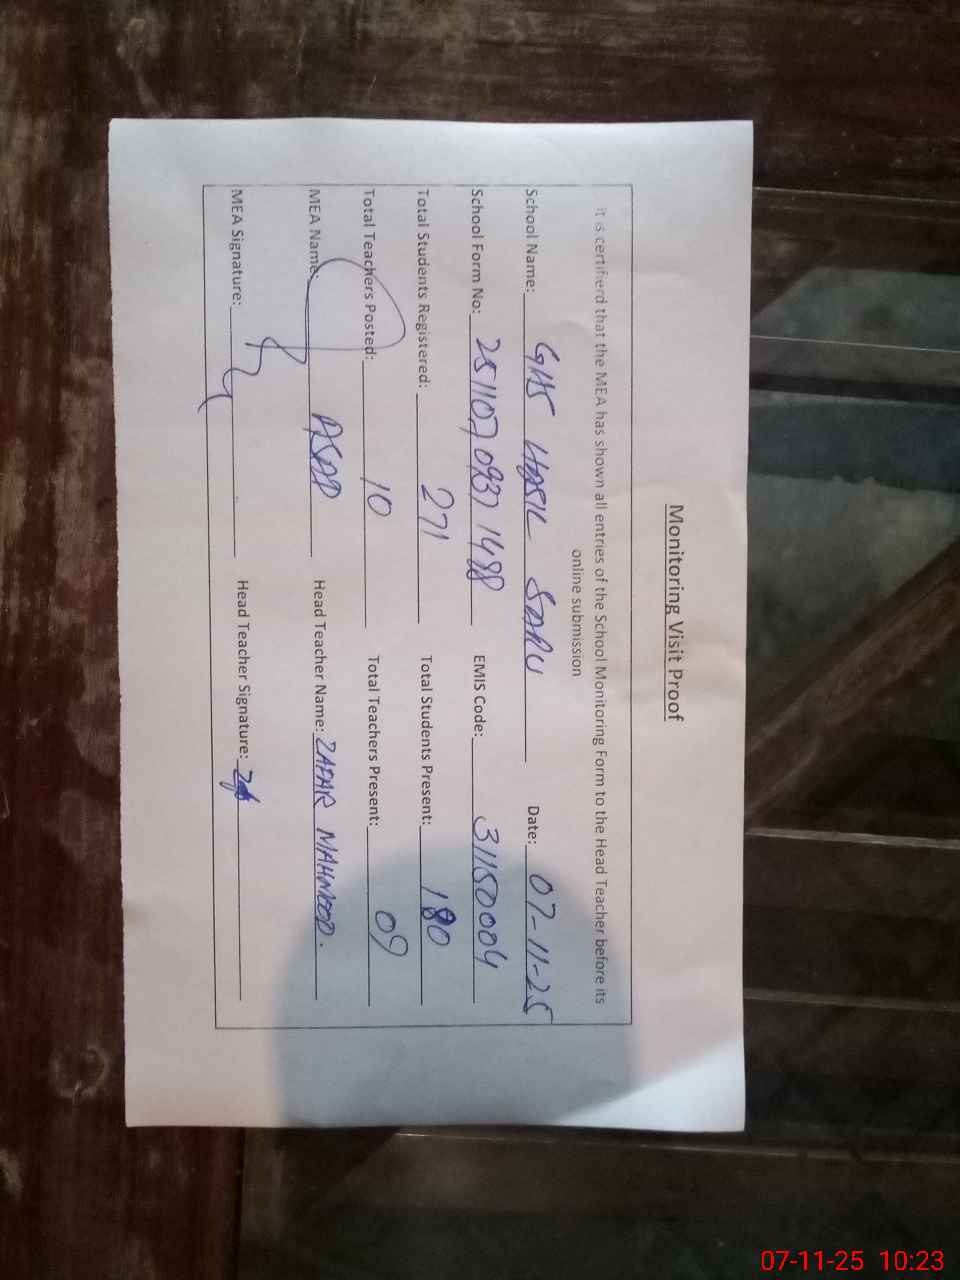 Monitoring Visit Proof
It is certifierd that the MEA has shown all entries of the School Monitoring Form to the Head Teacher before its
online submission
School Name: GHS HASIL SARU Date: 07-11-25
School Form No: 251107 0937 1488 EMIS Code: 31150004
Total Students Registered: 271 Total Students Present: 180
Total Teachers Posted: 10 Total Teachers Present: 09
MEA Name: ASAD Head Teacher Name: ZAFAR MAHMOOD.
MEA Signature: Head Teacher Signature:
07-11-25 10:23